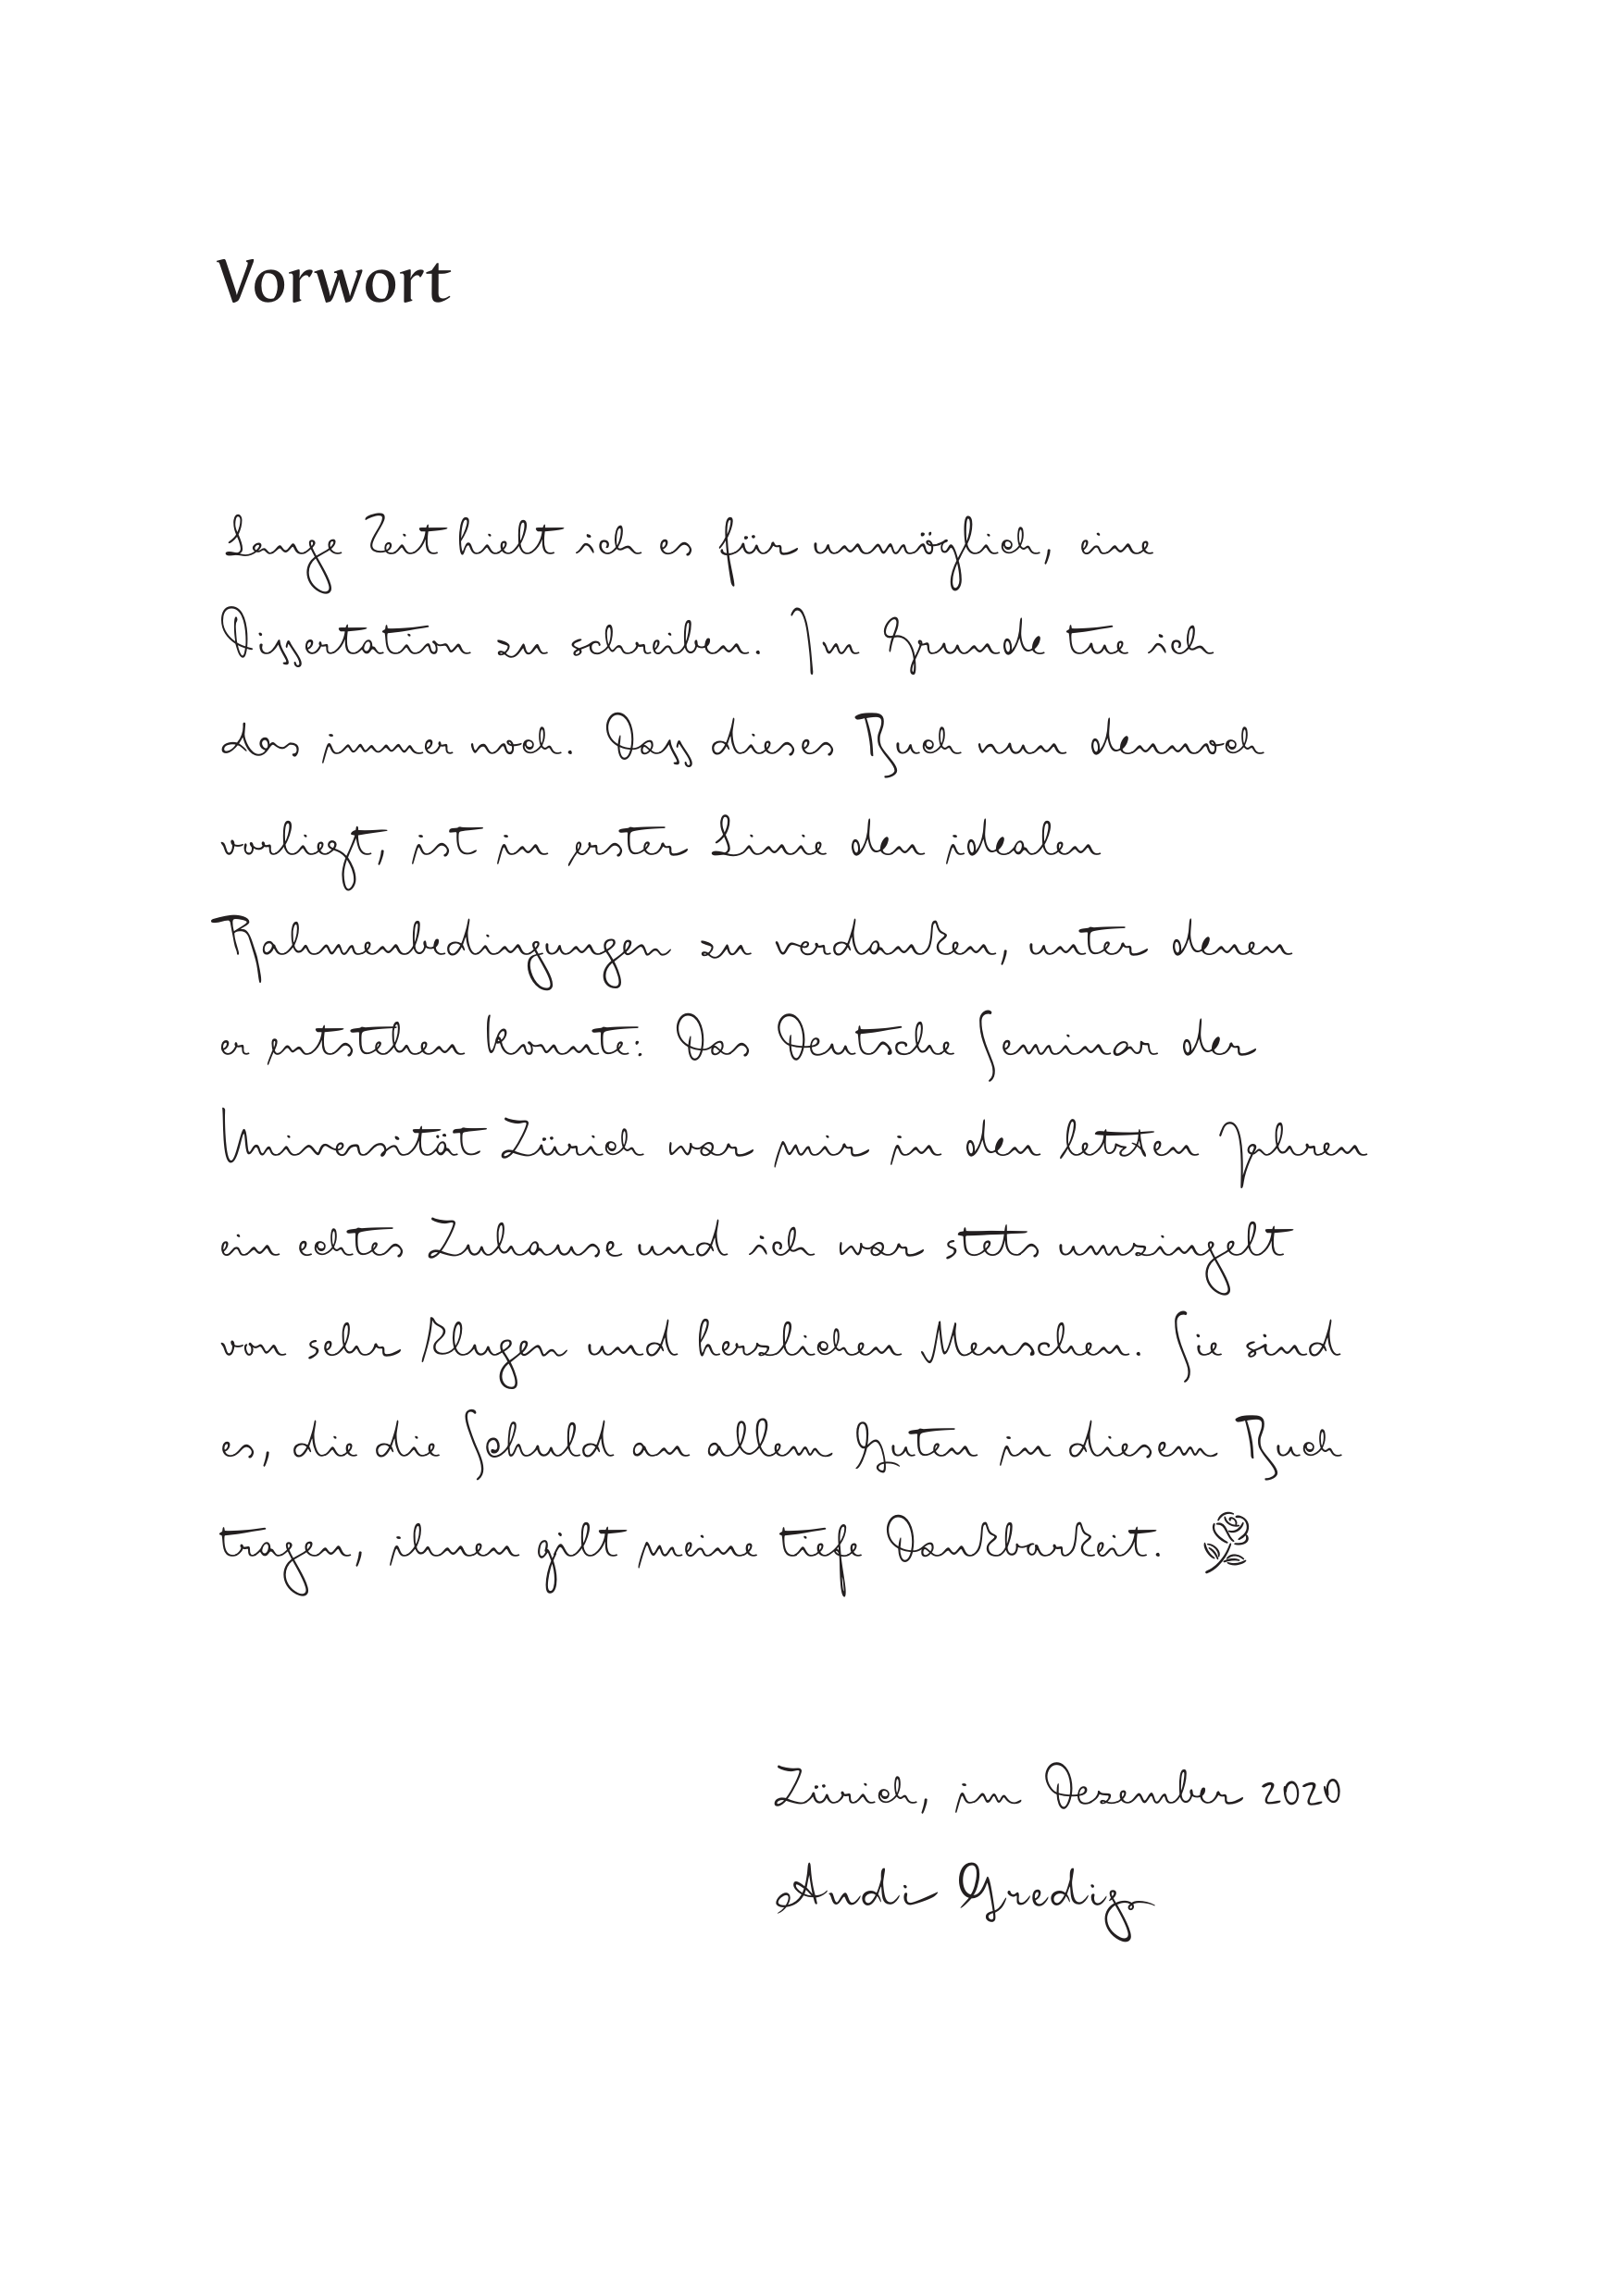 Vorwort
Lange Zeit hielt ich es für unmöglich, eine
Dissertation zu schreiben. Im Grunde tue ich
das immer noch. Dass dieses Buch nun dennoch
vorliegt, ist in erster Linie den idealen
Rahmenbedingungen zu verdanken, unter denen
er entstehen konnte: Das Deutsche Seminar der
Universität Zürich war mir in den letzten Jahren
ein echtes Zuhause und ich war stets umzingelt
von sehr klugen und herzlichen Menschen. Sie sind
es, die die Schuld an allem Guten in diesem Buch
tragen, ihnen gilt meine tiefe Dankbarkeit.
Zürich, im Dezember 2020
Andi Gredig